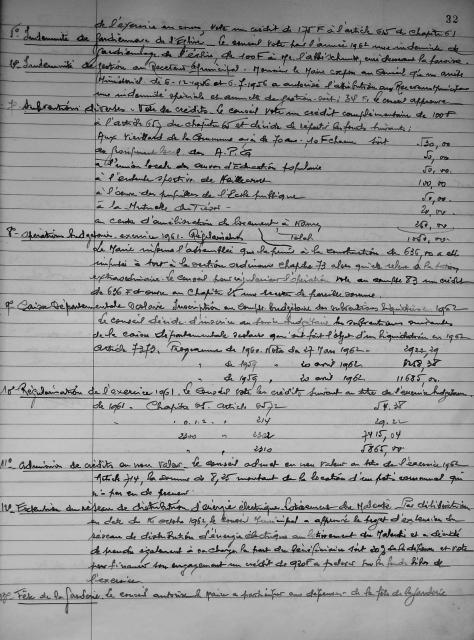 32
de l'exercice en cours, vote un crédit de 175 F à l'article 615 du chapitre 61
5° Indemnité de gardiennage de l'Eglise. Le conseil vote pour l'année 1962 une indemnité de
gardiennage de l'église, de 100 F à M. l'abbé
6° Indemnité de gestion au Receveur Municipal. Monsieur le Maire expose au Conseil qu'un arrêté
Ministériel du 6-12-1956 et 6-7-1956 a autorisé l'attribution aux Receveurs Municipaux
une indemnité spéciale et annuelle de gestion soit : Le conseil approuve
7° Subventions diverses. Vote de crédits. Le conseil vote un crédit complémentaire de 100 F
à l'article 657 du chapitre 65 et décide de répartir les fonds suivants :
Aux Vieillards de la Commune âgés de 70 ans. 10 F chacun soit
des A.P.G 50,00
à l'union locale des œuvres d'Education populaire 50,00
à l'entente sportive de 100,00
à l'œuvre des pupilles de l'Ecole publique 50,00
à la Mutuelle du Trésor 20,00
au centre d'amélioration du logement à
Total
8° Opérations budgétaires. exercice 1961. Régularisation
Le Maire informe l'assemblée que la prime à la construction de 636,00 a été
imputée à tort à la section ordinaire chapitre 73 alors qu'elle relève de la section
extraordinaire. Le conseil pour régulariser l'opération vote au compte 83 un crédit
de 636 F et ouvre au chapitre une recette de pareille somme.
9° Caisse Départementale Scolaire Inscription au Compte budgétaire des subventions 1962
Le conseil décide d'inscrire au budgétaire les subventions suivantes
de la caisse départementale scolaire qui ont fait l'objet d'une liquidation en 1962
Article 7373. Programme de 1960. Note du 27 Mars 1962 2922,29
" de 1959 " 20 avril 1962
" de 1959 " 20 avril 1962 11685,00
10° Régularisation de l'exercice 1961. Le conseil vote les crédits suivants au titre de l'exercice
de 1961. Chapitre 65. Article 6572 54,38
" " 214 29,22
2300 " 2302 7415,04
" 2310 5865,00
11° Admission de crédits en non valeur. Le conseil admet en non valeur au titre de l'exercice 1962
Article 714, la somme de 8,25 montant de la location d'un pati communal qui
n'a pas eu de preneur.
12° Extension du réseau de distribution d'énergie électrique. Lotissement du Par délibération
en date du octobre 1962, le Conseil Municipal a approuvé le projet d'extension du
réseau de distribution d'énergie électrique au lotissement du et a décidé
de prendre également à sa charge la part du bénéficiaire soit 20% de la dépense et vote
pour financer son engagement un crédit de 920 F à prélever sur les fonds libres de
l'exercice.
13° Fête de la Garderie. Le conseil autorise le Maire à participer aux dépenses de la fête de la Garderie